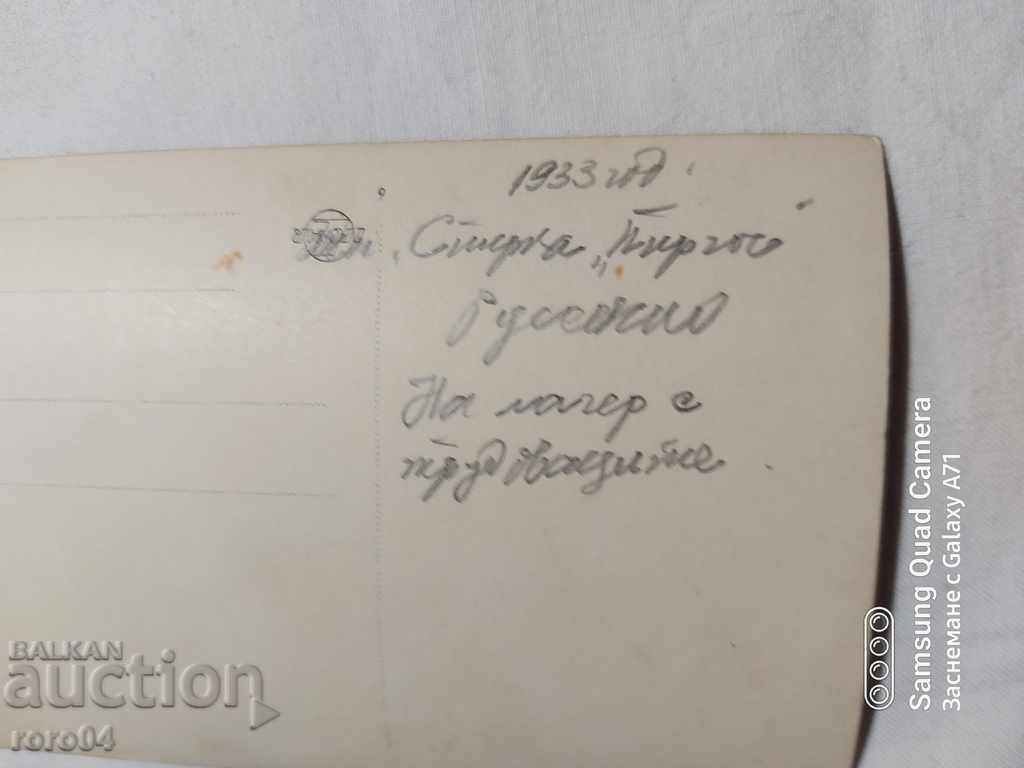 1933 год.
Спирка „Пиргос"
Русенско
На лагер с
трудоваците
BALKAN
auction
roro04
Samsung Quad Camera
Заснемане с Galaxy A71